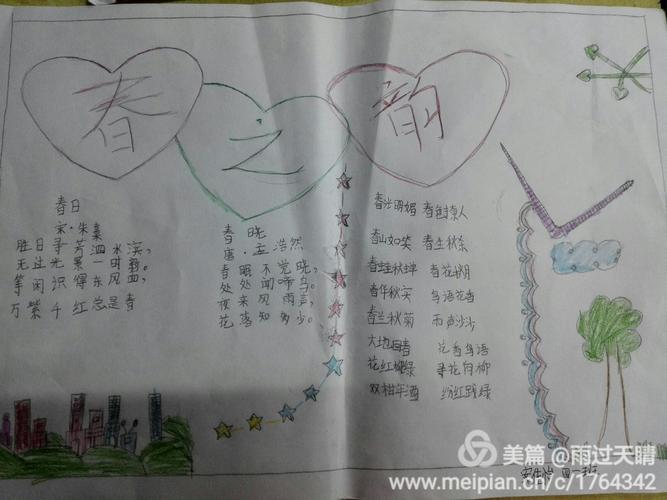 春之韵
春日
宋·朱熹
胜日寻芳泗水滨,
无边光景一时新。
等闲识得东风面,
万紫千红总是春
春晓
唐·孟浩然
春眠不觉晓,
处处闻啼鸟。
夜来风雨声,
花落知多少。
春光明媚 春色撩人
春山如笑 春生秋杀
春蛙秋蝉 春花秋月
春华秋实 鸟语花香
春兰秋菊 雨声沙沙
大地回春 花香鸟语
花红柳绿 寻花问柳
双柑斗酒 纷红骇绿
四一班
美篇 @雨过天晴
www.meipian.cn/c/1764342